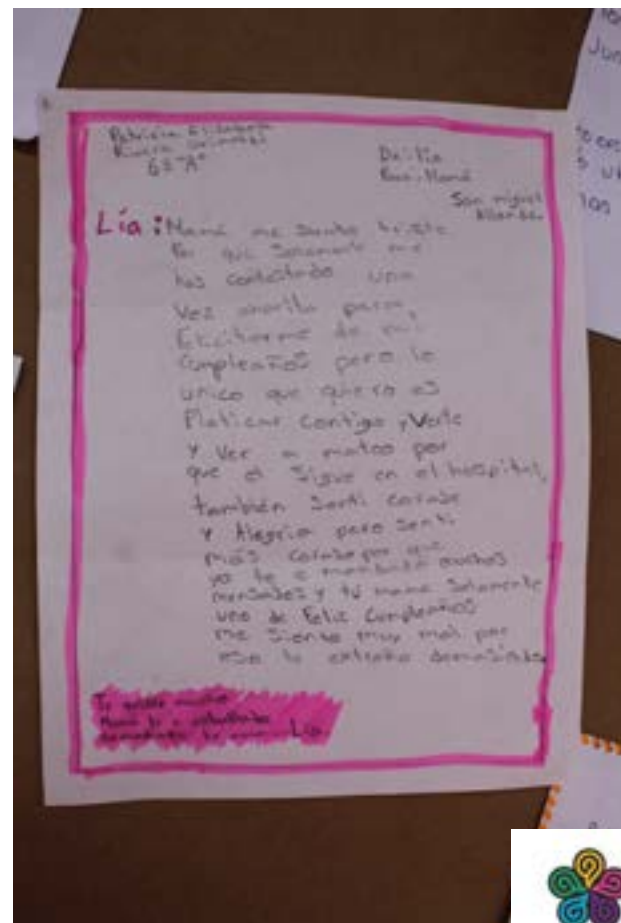 Patricia Elizabeth
Rivera
6º "A"
De: Lía
Para: Mamá
San miguel
Allende.
Lía: Mamá me siento triste
Por que Solamente me
has contestado una
Vez para
de mi
Cumpleaños pero lo
unico que quiero es
Platicar contigo y Verte
Y Ver a mateo por
que el Sigue en el hospital,
también Sentí coraje
Y Alegria pero Senti
más coraje por que
yo te e mandado muchos
mensajes y tú mamá Solamente
uno de Feliz Cumpleaños
me Siento muy mal por
eso te extraño demasiado.
Te quiero mucho
Mamá te e extrañado
demasiado Lía.
Jun